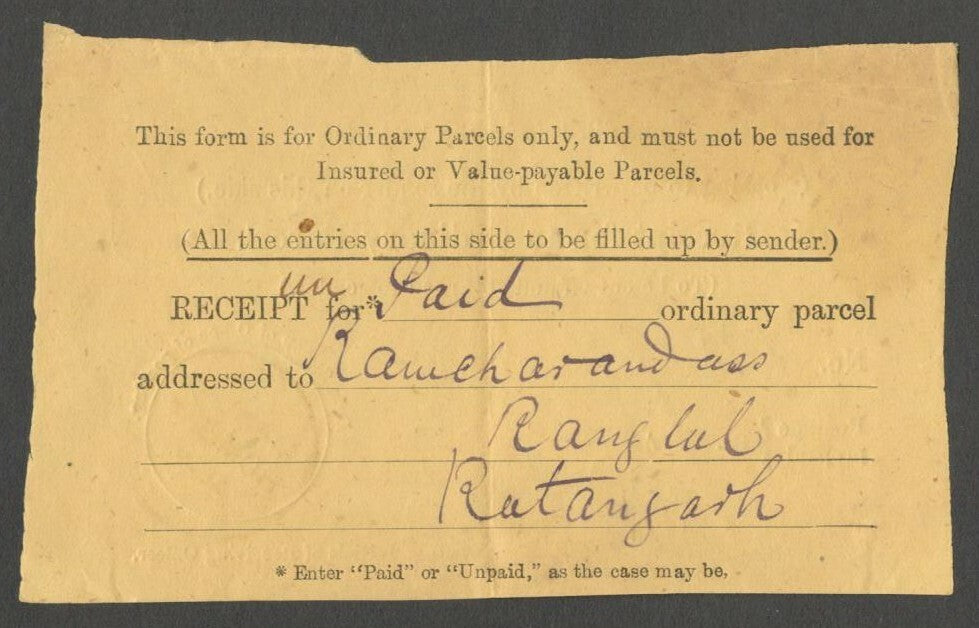 This form is for Ordinary Parcels only, and must not be used for
Insured or Value-payable Parcels.
(All the entries on this side to be filled up by sender.)
un
RECEIPT for* Paid ordinary parcel
addressed to Ramcharandass
Ranglal
Ratangarh
* Enter "Paid" or "Unpaid," as the case may be.